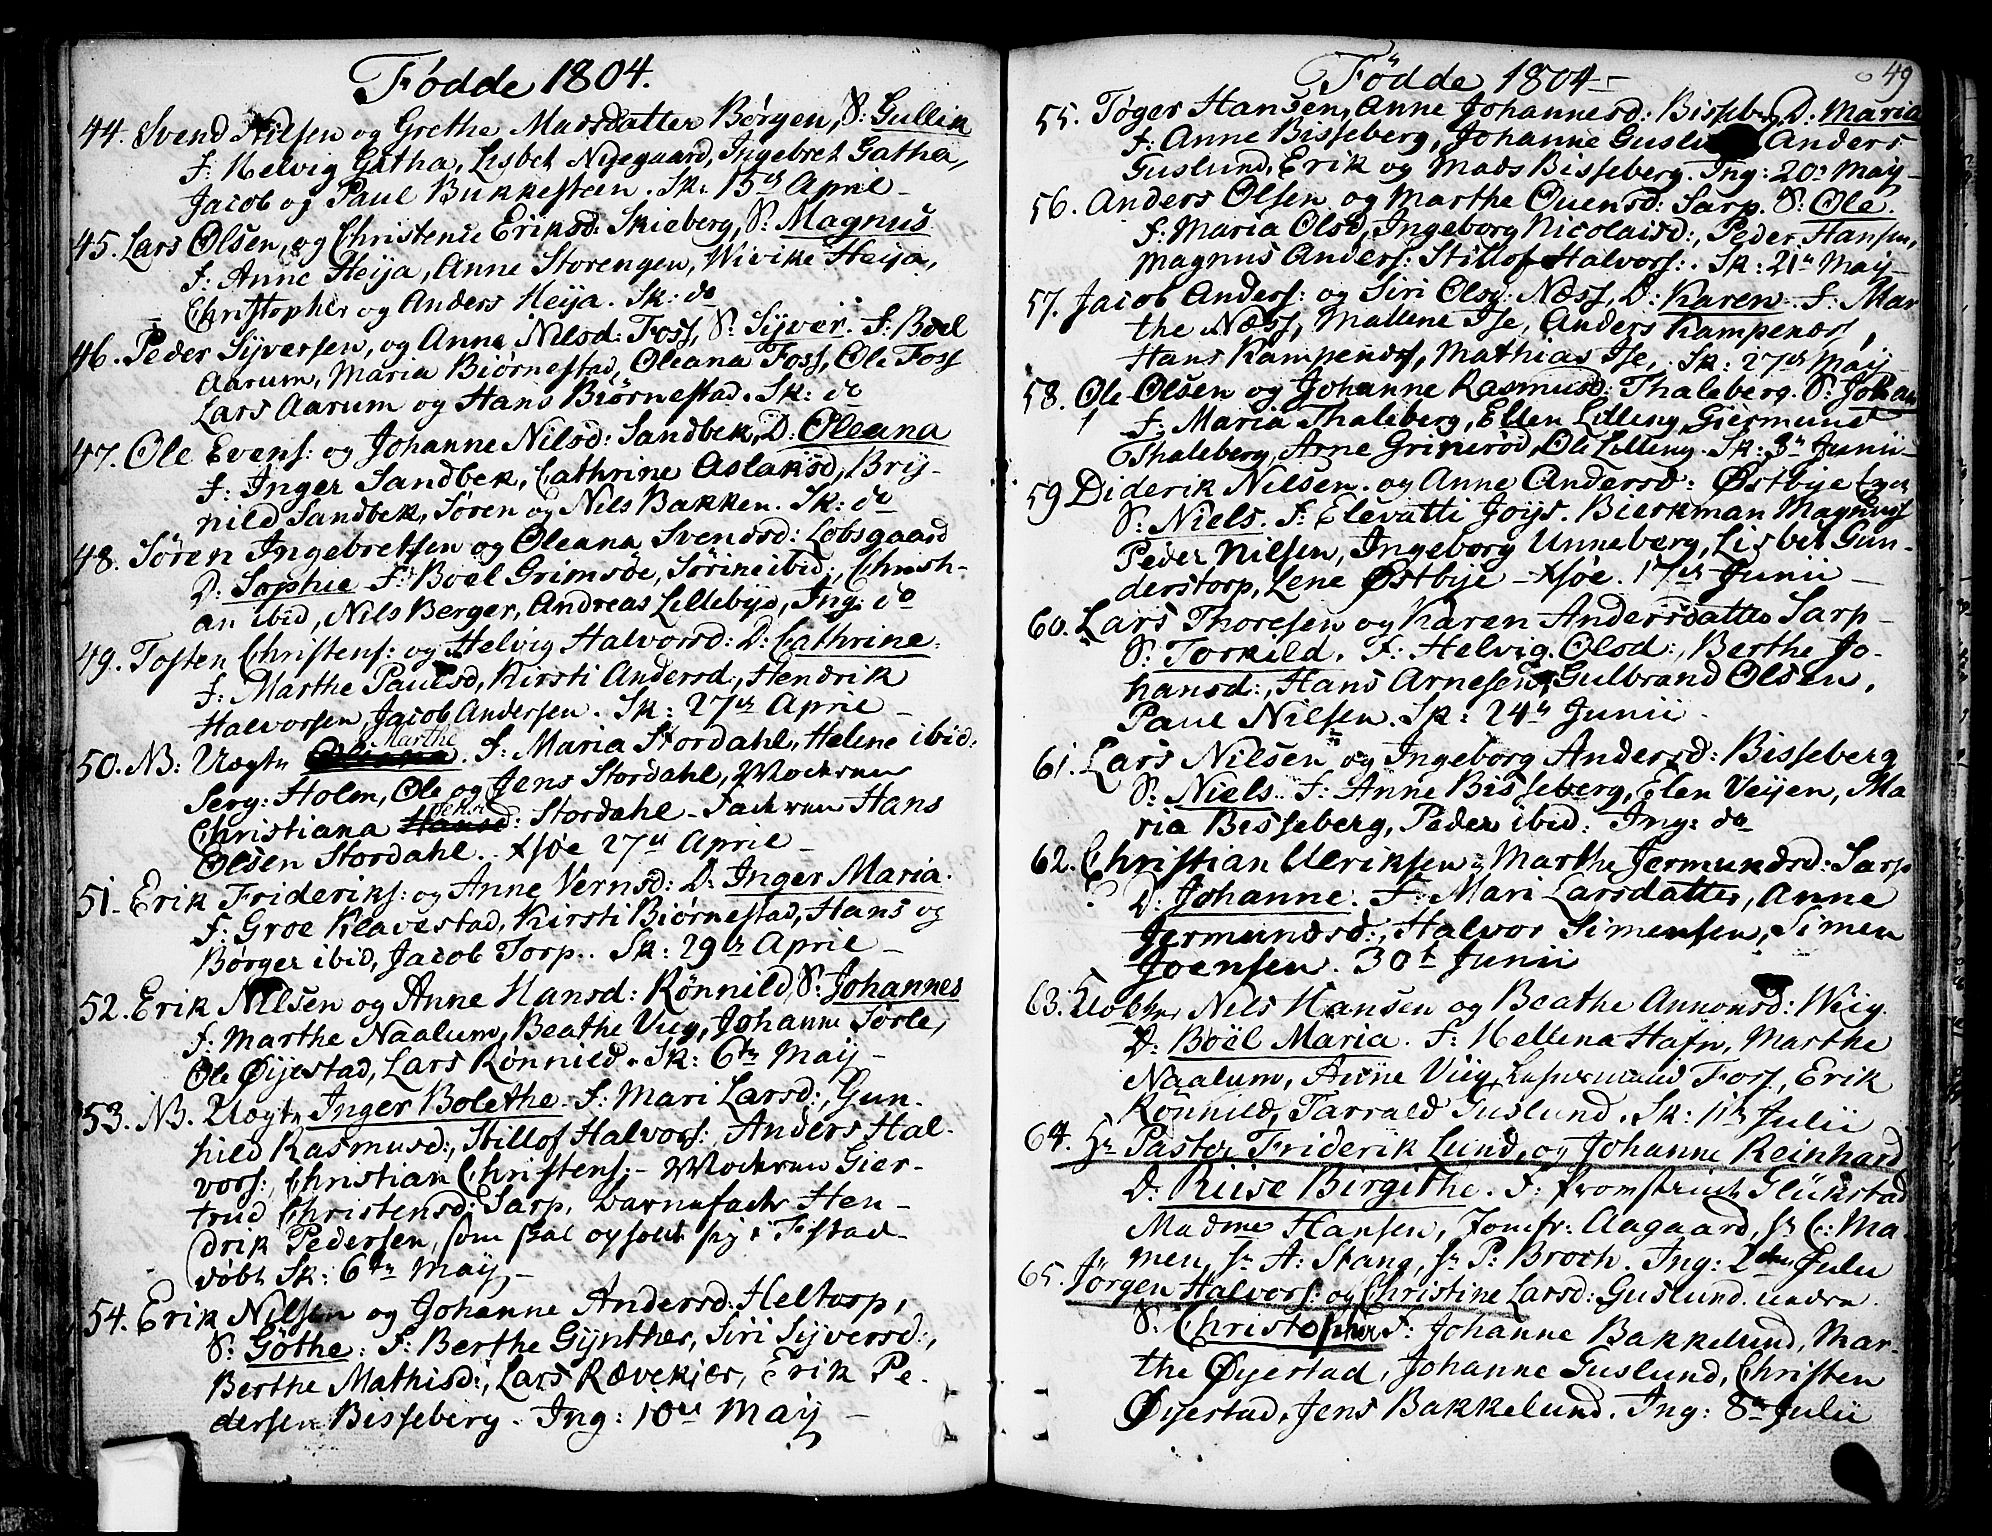 Fødde 1804.
44. Svend Nilsen og Grethe Madsdatter Børgen, S: Gullik
F: Helvig Gatha, Lisbet Nyegaard, Ingebret Gatha,
Jacob og Paul Bukkesteen. Sk: 15de April
45. Lars Olsen, og Christense Eriksd: Skieberg, S: Magnus
F: Anne Heija, Anne Storengen, Wivike Heija,
Christopher og Anders Heija. Sk: do
46. Peder Syversen, og Anne Nilsd: Foss, S: Syver. F: Boel
Aarum, Maria Biørnestad, Oleana Foss, Ole Foss
Lars Aarum og Hans Biørnestad. Sk: do
47. Ole Evens: og Johanne Nilsd: Sandbek, D: Oleana
F: Inger Sandbek, Cathrine Aslaksd, Bry-
nild Sandbek, Søren og Nils Bakken. Sk: do
48. Søren Ingebretsen og Oleana Svendsd: Lobsgaard
D: Sophie F: Boel Grimsøe, Sørine ibid:, Christi-
an ibid, Nils Berger, Andreas Lillebye, Ing: do
49. Tosten Christens: og Helvig Halvorsd: D: Cathrine.
F: Marthe Paulsd, Kirsti Andersd:, Hendrik
Halvorsen, Jacob Andersen. Sk: 27de April
50. NB: Uægte Marthe. F: Maria Stordahl, Helene ibid:
Serg: Holm, Ole og Jens Stordahl, Moderen
Christiana Stordahl - Faderen Hans
Olsen Stordahl. 27de April
51. Erik Frideriks: og Anne Vernsd: D: Inger Maria.
F: Groe Klavestad, Kirsti Biørnestad, Hans og
Børger ibid, Jacob Torp. Sk: 29de April
52. Erik Nilsen og Anne Hansd: Rønnild, S: Johannes
F: Marthe Naalum, Beathe Viig, Johanne Sørle,
Ole Øyestad, Lars Rønnild. Sk: 6te May
53. NB. Uægte Inger Bolethe. F: Mari Larsd:, Gun-
hild Rasmusd:, Stillof Halvors:, Anders Hal-
vors:, Christian Christens: - Moderen Gier-
trud Christensd: Sarp, Barnefader Hen-
drik Pedersen, som skal opholde sig i Fistad
døbt Sk: 6te May
54. Erik Nilsen og Johanne Andersd: Heltorp,
S: Gøthe: F: Berthe Gynther, Siri Syversd:,
Berthe Mathisd:, Lars Rævekier, Erik Pe-
dersen Bisseberg. Ing: 10de May
Fødde 1804
49
55. Tøger Hansen, Anne Johannesd: Bisseberg, D: Maria
F: Anne Bisseberg, Johanne Guslund, Anders
Guslund, Erik og Mads Bisseberg. Ing: 20. May
56. Anders Olsen og Marthe Ouensd: Sarp. S: Ole.
F: Maria Olsd, Ingeborg Nicolaisd:, Peder Hansen,
Magnus Anders: Stillof Halvors:. Sk: 21de May
57. Jacob Anders: og Siri Olsd: Næss, D: Karen. F: Mar-
the Næss, Mallene Ise, Anders Kampenæs,
Hans Kampenæs, Mathias Ise, Sk: 27de May
58. Ole Olsen og Johanne Rasmusd: Thaleberg. S: Johan
F: Maria Thaleberg, Ellen Lilleng, Giermund
Thaleberg, Arne Grinerød, Ole Lilleng. Sk: 3de Junii
59 Diderik Nilsen. og Anne Andersd: Østbye
S: Niels. F: Elevatti Joys. Bierkman Magnus
Peder Nilsen, Ingeborg Unneberg, Lisbet Gun-
derstorp, Lene Østbye - 17de Junii
60. Lars Thoresen og Karen Andersdatter Sarp
S: Torkild. F: Helvig Olsd:, Berthe Jo-
hansd:, Hans Arnesen, Gulbrand Olsen,
Paul Nilsen. Sk: 24de Junii
61. Lars Nilsen og Ingeborg Andersd: Bisseberg
S: Niels. F: Anne Bisseberg, Elen Veijen, Ma
ria Bisseberg, Peder ibid: Ing: do
62. Christian Ulriksen & Marthe Jermundsd: Sarp
D: Johanne. F: Mari Larsdatter, Anne
Jermundsd:, Halvor Simensen, Simen
Joensen. 30te Junii
63. Nils Hansen og Beathe Ammonsd: Wiig.
D: Boël Maria. F: Hellena Hafn, Marthe
Naalum, Anne Viig, Foss, Erik
Rønnild, Tarrald Guslund. Sk: 11te Julii
64. Hr Pastor Friderik Lund, og Johanne Reinhard
D: Riise Birgithe. F: Glükstad
Madme Hansen, Jomfr: Aagaard, Hr C: Ma-
men, Hr A: Stang, Hr P: Broch. Ing: 2den Julii
65. Jørgen Halvors: og Christine Larsd: Guslund
S: Christopher F: Johanne Bakkelund, Mar-
the Øyestad, Johanne Guslund, Christen
Øyestad, Jens Bakkelund. Ing: 8de Julii